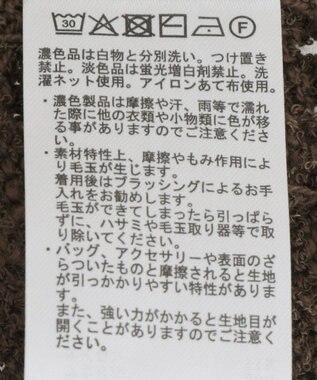 30 F
濃色品は白物と分別洗い。つけ置き
禁止。淡色品は蛍光増白剤禁止。洗
濯ネット使用。アイロンあて布使用。
・濃色製品は摩擦や汗、雨等で濡れ
た際に他の衣類や小物類に色が移
る事がありますのでご注意くださ
い。
・素材特性上、摩擦やもみ作用によ
り毛玉が生じます。
着用後はブラッシングによるお手
入れをお勧めします。
毛玉ができてしまったら引っぱら
ずに、ハサミや毛玉取り器等で取
り除いてください。
・バッグ、アクセサリーや表面のざ
らついたものと摩擦されると生地
が引っかかりやすい特性がありま
す。
また、強い力がかかると生地目が
開くことがありますのでご注意く
ださい。